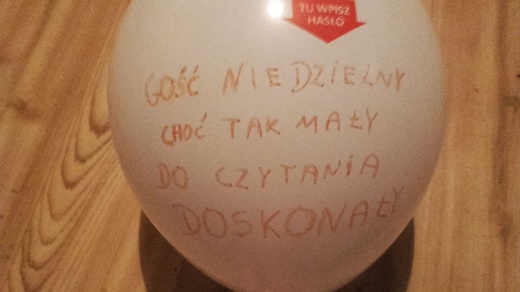 TU WPISZ
HASŁO
GOŚĆ NIEDZIELNY
CHOĆ TAK MAŁY
DO CZYTANIA
DOSKONAŁY